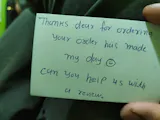 Thanks dear for ordering
your order has made
my day ☺
can you help us with
a review